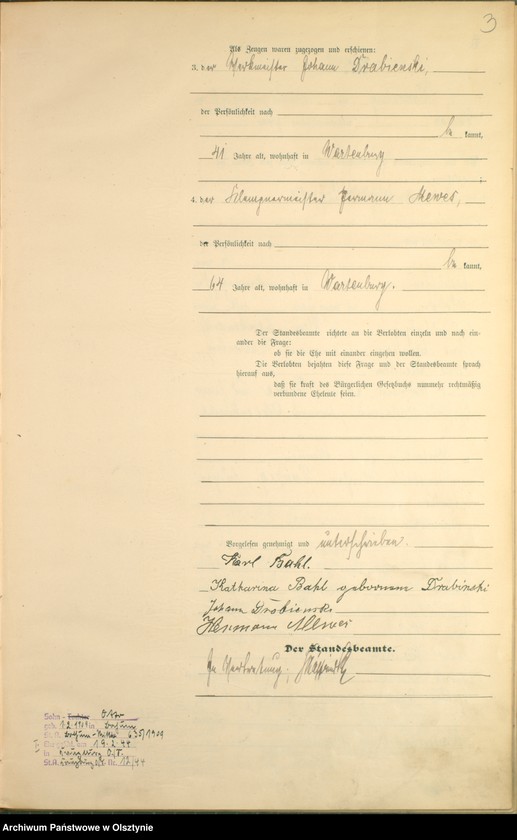 3
Als Zeugen waren zugezogen und erschienen:
3. der Werkmeister Johann Drabienski,
der Persönlichkeit nach
be kannt,
41 Jahre alt, wohnhaft in Wartenburg
4. der Klempnermeister Hermann Mewes,
der Persönlichkeit nach
be kannt,
64 Jahre alt, wohnhaft in Wartenburg.
Der Standesbeamte richtete an die Verlobten einzeln und nach ein-
ander die Frage:
ob sie die Ehe mit einander eingehen wollen.
Die Verlobten bejahten diese Frage und der Standesbeamte sprach
hierauf aus,
daß sie kraft des Bürgerlichen Gesetzbuchs nunmehr rechtmäßig
verbundene Eheleute seien.
Vorgelesen, genehmigt und unterschrieben.
Karl Bahl.
Katharina Bahl geborene Drabinski
Johann Drobienski
Hermann Mewes
Der Standesbeamte.
In Vertretung:
Sohn - Tochter Otto
geb. 1.2.1909 in Bochum
St.A. Bochum-Mitte 635/1909
am 19.2.44
in
St.A. Nr. 12/44
Archiwum Państwowe w Olsztynie